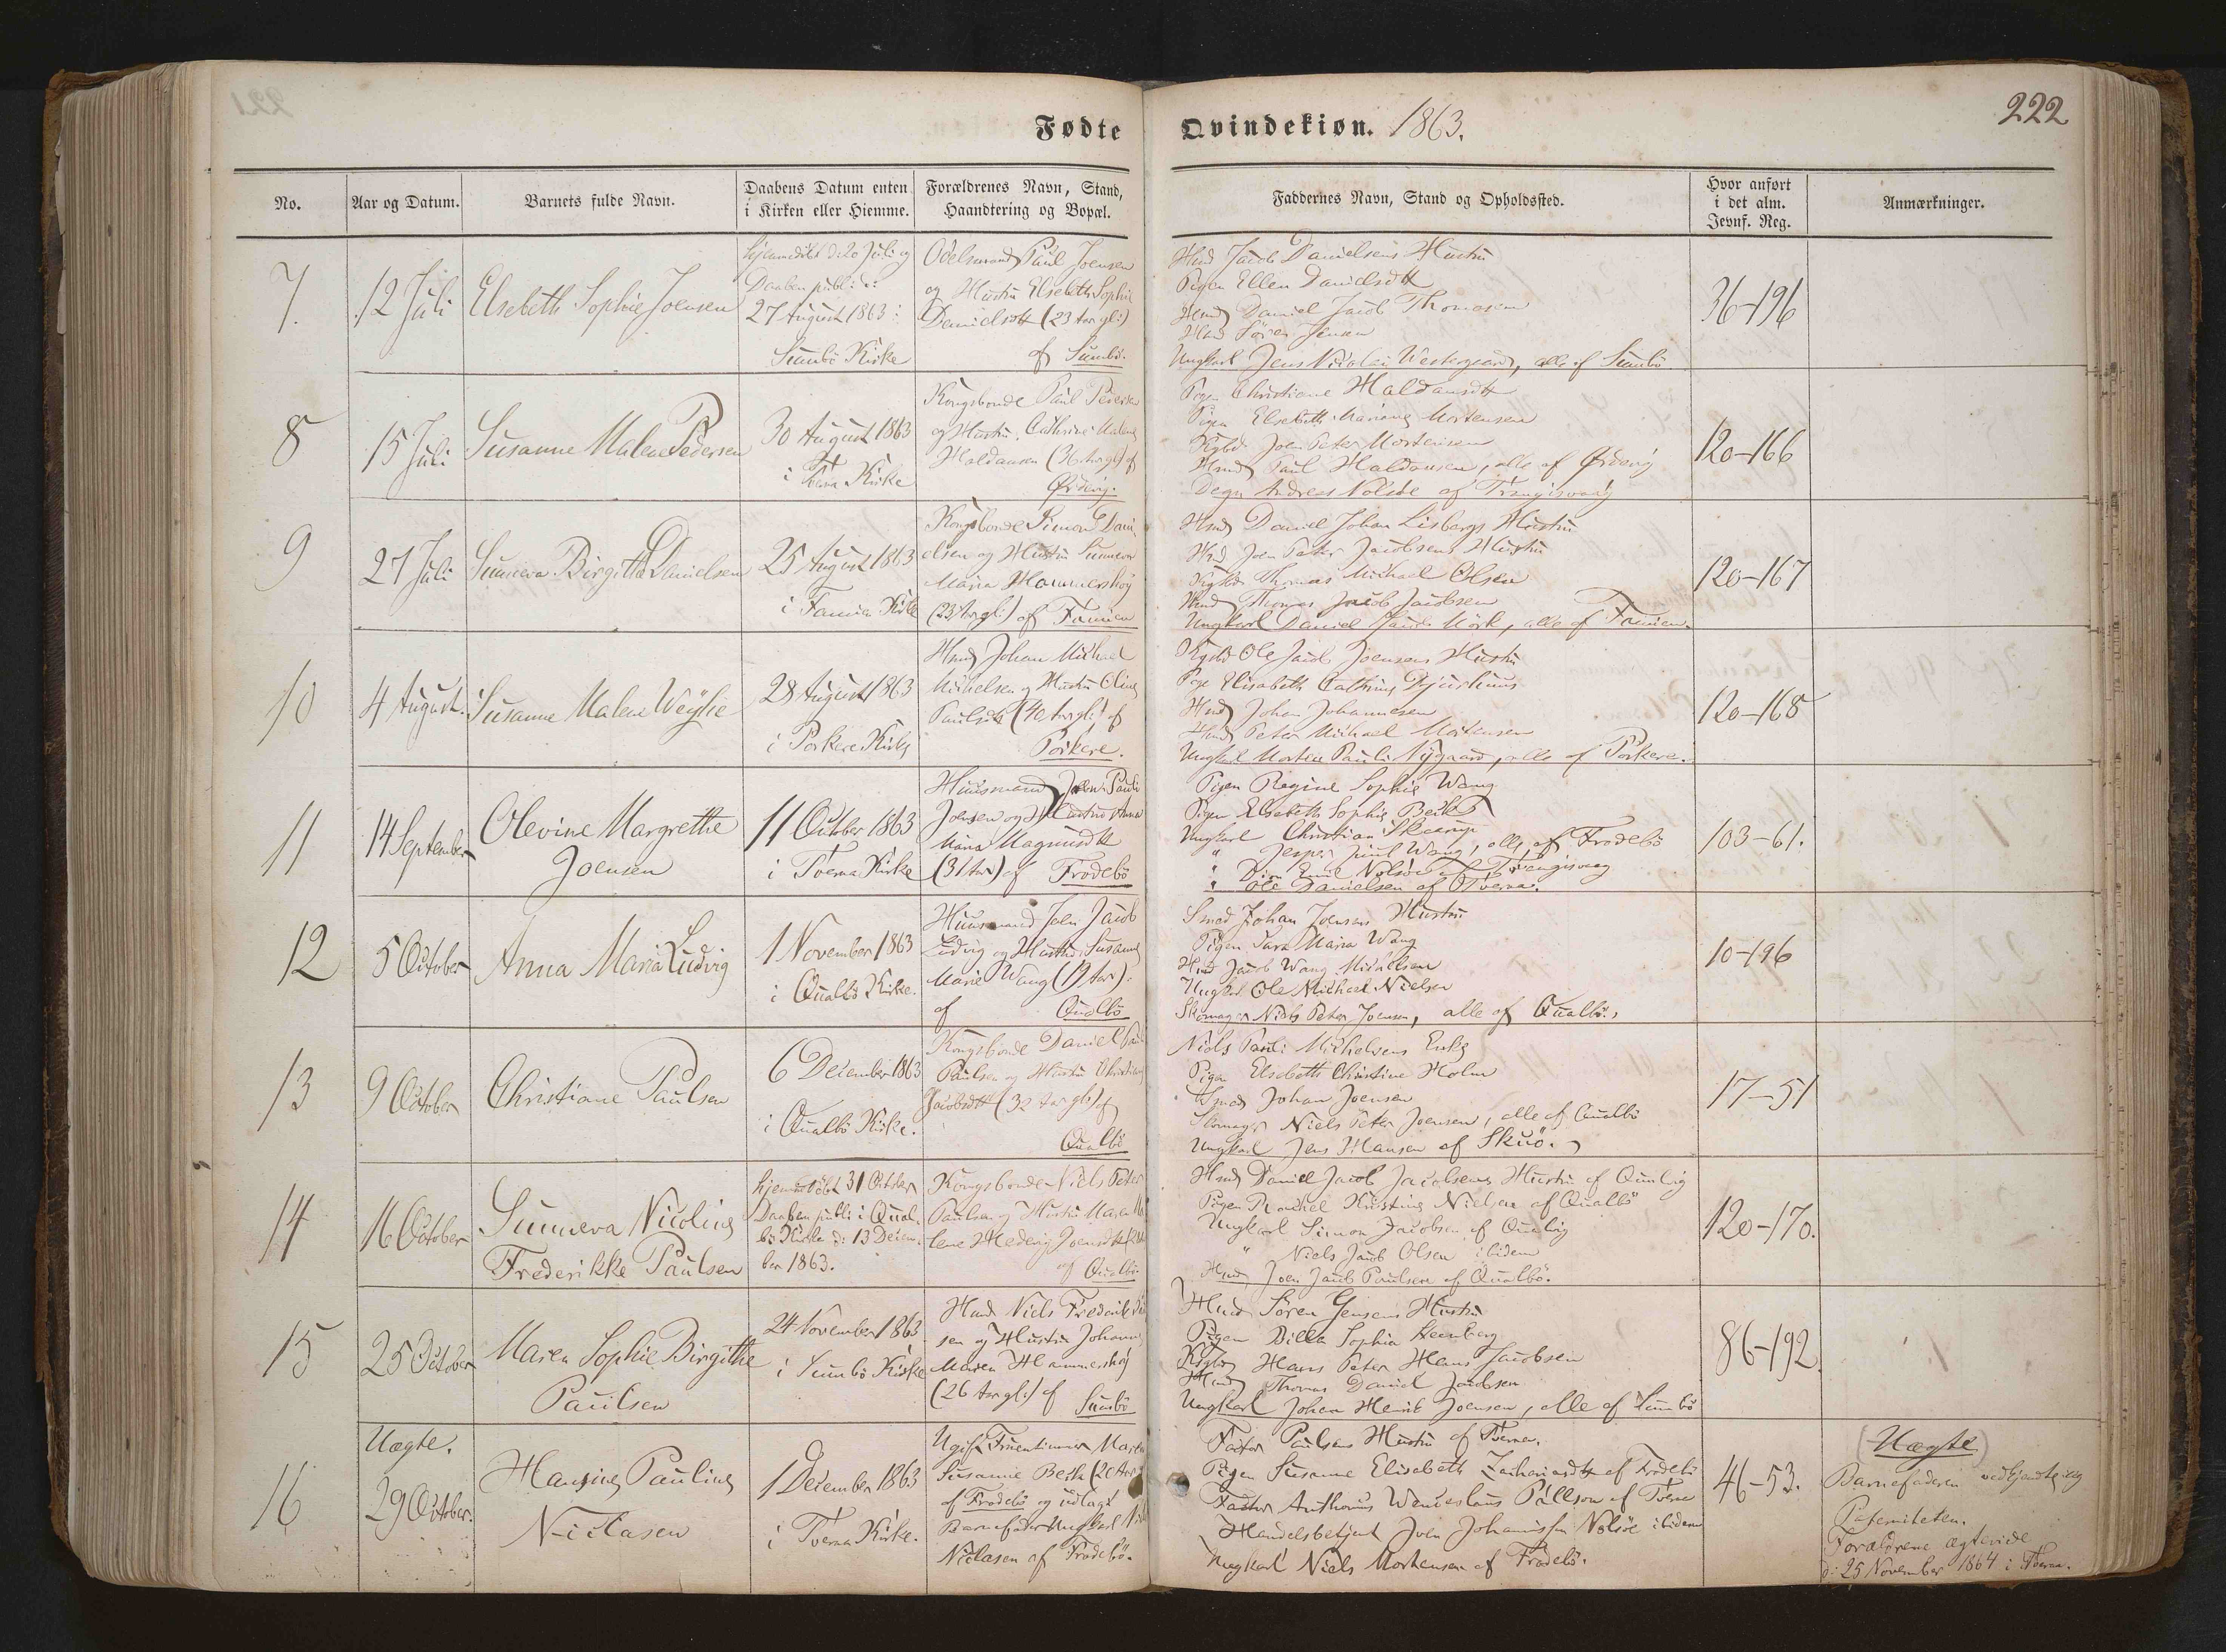 222
Fødte Qvindekiøn. 1863.
No.
Aar og Datum.
Barnets fulde Navn.
Daabens Datum enten
i Kirken eller Hiemme.
Forældrenes Navn, Stand,
Haandtering og Bopæl.
Faddernes Navn, Stand og Opholdssted.
Hvor anført
i det alm.
Jevnf. Reg.
Anmærkninger.
7.
12 Juli
Elsebeth Sophie Joensen
hjemmedöbt d: 20 Juli og
Daaben publ: d:
27 August 1863 i
Sumbö Kirke
Odelsmand Paul Joensen
og Hustru Elsebeth Sophie
Danielsdtt (23 Aar gl:)
af Sumbö.
Hmd Jacob Danielsens Hustru
Pigen Ellen Danielsdtt
Hmd Daniel Jacob Thomasen
Hmd Sören Jensen
Ungkarl Jens Nicolai Westergaard, alle af Sumbö
36-196
8
15 Juli
Susanne Malene Pedersen
30 August 1863
i Tveraa Kirke
Kongsbonde Paul Pedersen
og Hustru Cathrine Malene
Haldansen (36 Aar gl) af
Ördevig.
Pigen Christiane Haldansdtt
Pigen Elsebeth Mariane Mortensen
Kgbd Joen Peter Mortensen
Hmd Paul Haldansen, alle af Ördevig
Degn Andreas Nolsöe af Trangisvaag
120-166
9
27 Juli
Sunneva Birgitte Danielsen
25 August 1863
i Famien Kirke
Kongsbonde Simon Dani-
elsen og Hustru Sunneva
Maria Hammershöj
(23 Aar gl:) af Famien
Hmd Daniel Johan Lisbergs Hustru
Hmd Joen Peter Jacobsens Hustru
Kgbd Thomas Michael Olsen
Hmd Thomas Jacob Jacobsen
Ungkarl Daniel Jacob Mörk, alle af Famien.
120-167
10
4 August.
Susanne Malene Weyhe
28 August 1863
i Porkere Kirke
Hmd Johan Michael
Michelsen og Hustru Oline
Paulsdtt (40 Aar gl:) af
Porkere.
Kgbd Ole Jacob Joensens Hustru
Pige Elisabeth Cathrine Djurhuus
Hmd Johan Johannesen
Hmd Peter Michael Mortensen
Ungkarl Morten Pauli Nygaard, alle af Porkere.
120-168
11
14 September
Olevine Margrethe
Joensen
11 October 1863
i Tveraa Kirke
Huusmand Joen Pauli
Joensen og Hustru Anna
Maria Magnusdtt
(31 Aar) af Frodebö
Pigen Regine Sophie Wang
Pigen Elsebeth Sophie Beck
Ungkarl Christian Skaarup
" Jesper Juul Wang, alle af Frodebö
" Dion Emil Nolsöe af Trangisvaag
" Ole Danielsen af Tveraa.
103-61.
12
5 October
Anna Maria Ludvig
1 November 1863
i Qualbö Kirke.
Huusmand Joen Jacob
Ludvig og Hustru Susanne
Marie Wang (19 Aar).
af Qualbö
Smed Johan Joensens Hustru
Pigen Sara Maria Wang
Hmd Jacob Wang Michelsen
Ungkarl Ole Michael Nielsen
Skomager Niels Peter Joensen, alle af Qualbö.
10-196
13
9 October
Christiane Paulsen
6 December 1863
i Qualbö Kirke.
Kongsbonde Daniel
Paulsen og Hustru Christiane
Jacobsdtt (32 Aar gl:) af
Qualbö
Niels Pauli Michelsens Enke
Pigen Elsebeth Christine Holm
Smed Johan Joensen
Skomager Niels Peter Joensen, alle af Qualbö
Ungkarl Jens Hansen af Skuö.
17-51
14
16 October
Sunneva Nicoline
Frederikke Paulsen
hjemmedöbt 31 October
Daaben publ: i Qual-
bö Kirke d: 13 Decem-
ber 1863.
Kongsbonde Niels Peter
Paulsen og Hustru Maren Ma
lene Hedevig Joensdtt
af Qualbö.
Hmd Daniel Jacob Jacobsens Hustru af Qualvig
Pigen Rachel Kirstine Nielsen af Qualbö
Ungkarl Simon Jacobsen af Qualvig
" Niels Jacob Olsen ibidem
Hmd Joen Jacob Paulsen af Qualbö.
120-170.
15
25 October
Maren Sophie Birgithe
Paulsen
24 November 1863
i Sumbö Kirke
Hmd Niels Frederik
sen og Hustru Johanne
Maren Hammershöj
(26 Aar gl:) af Sumbö
Hmd Sören Jensens Hustru
Pigen Billa Sophia Steenberg
Kgbd Hans Peter Hans Jacobsen
Hmd Thomas Daniel Jacobsen
Ungkarl Johan Henrik Joensen, alle af Sumbö
86-192.
Uægte.
16
29 October.
Hansine Pauline
Niclasen
1 December 1863
i Tveraa Kirke.
Ugift Fruentimmer Maren
Susanne Beck (20 Aar
af Frodebö og udlagt
Barnefader Ungkarl
Niclasen af Frodebö.
Factor Paulsens Hustru af Tveraa.
Pigen Susanne Elisebeth Zachariasdtt af Frodebö
Factor Anthonius Wenceslaus Pállson af Tveraa
Handelsbetjent Joen Johannesen Nolsöe ibidem
Ungkarl Niels Mortensen af Frodebö.
46-53.
(Uægte)
Barnefaderen vedkjendte sig
Paterniteten.
Forældrene ægteviede
d: 25 November 1864 i Tveraa.